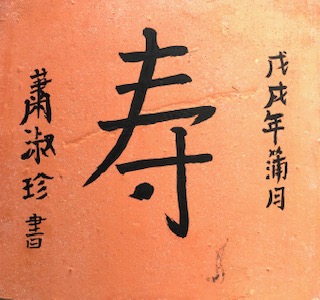 戊戌年蒲月
寿
蕭淑珍書